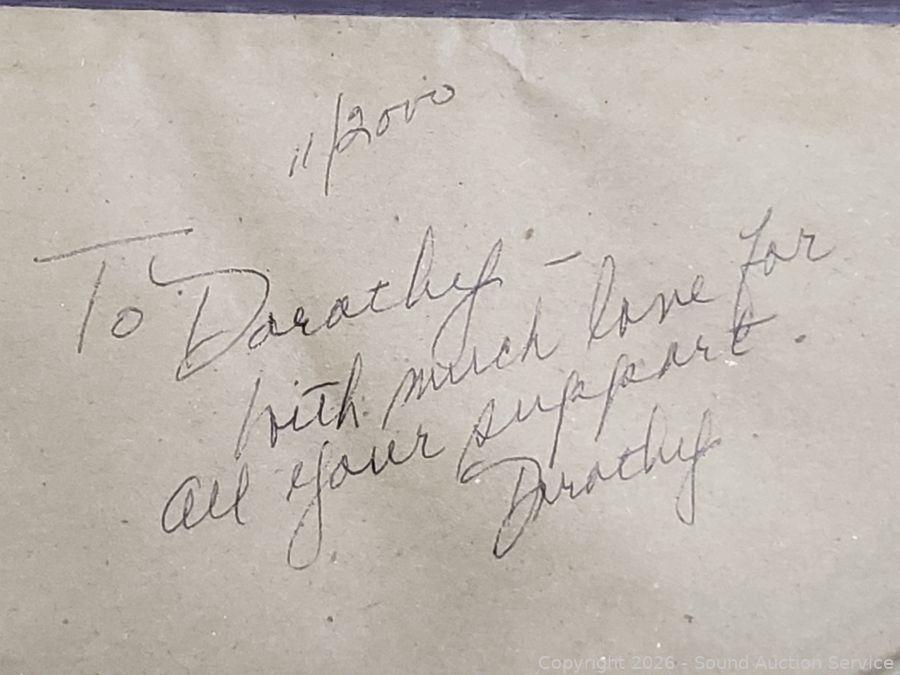 11/2000
To Dorothy –
With much love for
all your support.
Dorothy
Copyright 2026 - Sound Auction Service